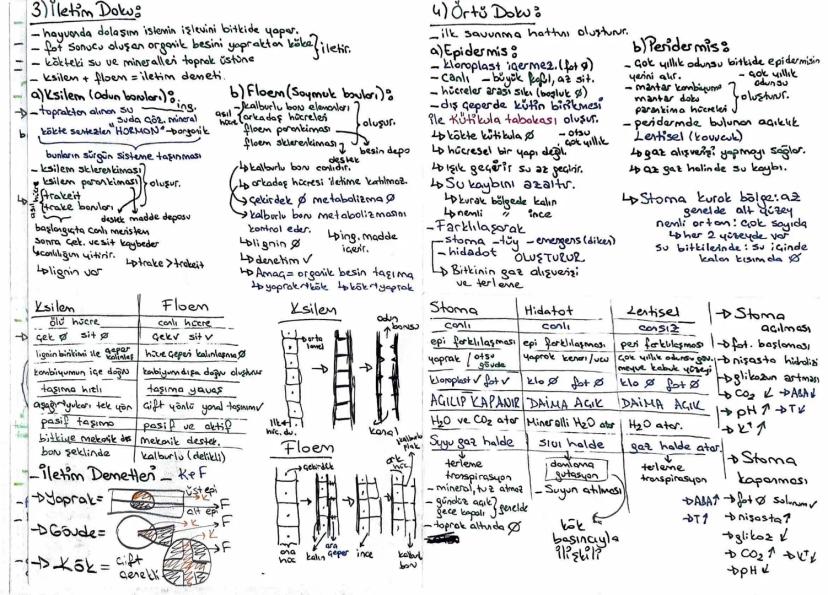 3) İletim Doku:
- hayvanda dolaşım işlemin işlevini bitkide yapar.
- fot sonucu oluşan organik besini yapraktan köke
- kökteki su ve mineralleri toprak üstüne
iletir.
- ksilem + floem = iletim demeti.
a) Ksilem (Odun boruları):
→ topraktan alınan su
suda çöz. mineral
ing.
kökte sentezlen HORMON → organik
bunların sürgün sisteme taşınması
- ksilem sklerenkiması
- ksilem parankiması
- trakeit
- trake boruları
oluşur.
asıl hücre
destek
madde deposu
başlangıçta canlı meristem
sonra çek. ve sit kaybeder
canlılığını yitirir.
↳ trake > trakeit
↳ lignin var
b) Floem (Soymuk boruları):
asıl hücre
kalburlu boru elemanları
arkadaş hücreleri
floem parankiması
floem sklerenkiması
oluşur.
destek
besin depo
↳ kalburlu boru canlıdır.
↳ arkadaş hücresi iletime katılmaz.
↳ çekirdek Ø metabolizma Ø
↳ kalburlu boru metabolizmasını
kontrol eder.
↳ lignin Ø
↳ ing. madde
içerir.
↳ denetim ✓
↳ Amaç = organik besin taşıma
↳ yaprak → kök ↳ kök → yaprak
Ksilem Floem
ölü hücre canlı hücre
çek Ø sit Ø çek ✓ sit ✓
lignin birikimi ile çeper kalınlaş. hücre çeperi kalınlaşma Ø
kambiyumun içe doğru kabiyum dışa doğru oluşturur
taşıma hızlı taşıma yavaş
aşağı → yukarı tek yön Çift yönlü yanal taşınım ✓
pasif taşıma pasif ve aktif
bitkiye mekanik ds mekanik destek.
boru şeklinde kalburlu (delikli)
- İletim Demetleri → K+F
→ Yaprak =
üst epi
K
F
alt epi
→ Gövde =
K
F
→ Kök = Çift
çenekli
K
F
Ksilem
orta lamel
odun borusu
kanal
Floem
çekirdek
ark hüc.
kalburlu plak
ana hüc
kalın
ara çeper
ince
kalbur boru
4) Örtü Doku:
- ilk savunma hattını oluşturur.
a) Epidermis:
- kloroplast içermez. (fot Ø)
- Canlı - büyük kofil, az sit.
- hücreler arası sıkı (boşluk Ø)
- dış çeperde kütin birikmesi
ile Kütikula tabakası oluşur.
↳ kökte kütikula Ø
- otsu
çok yıllık
↳ hücresel bir yapı değil.
↳ Işık geçirir su az geçir.
↳ Su kaybını azaltır.
↳ kurak bölgede kalın
↳ nemli " ince
- Farklılaşarak
- stoma - tüy - emergens (diken)
- hidadot OLUŞTURUR
↳ Bitkinin gaz alışverişi
ve terleme
b) Peridermis:
- çok yıllık odunsu bitkide epidermisin
yerini alır.
- çok yıllık
odunsu
- mantar kambiyumu
mantar doku
parankima hücreleri
oluşturur.
- peridermde bulunan açıklık
Lentisel (kovucuk)
↳ gaz alışverişi yapmayı sağlar.
↳ az gaz halinde su kaybı.
↳ Stoma kurak bölge: az
genelde alt yüzey
nemli ortam: çok sayıda
↳ her 2 yüzeyde var
su bitkilerinde: su içinde
kalan kısımda Ø
Stoma Hidatot Lentisel
canlı canlı cansız
epi farklılaşması epi farklılaşması peri farklılaşması
yaprak / otsu gövde yaprak kenarı/ucu çok yıllık odunsu göv. meyve kabuk yüzeyi
kloroplast ✓ fot ✓ klo Ø fot Ø klo Ø fot Ø
AÇILIP KAPANIR DAİMA AÇIK DAİMA AÇIK
H₂O ve CO₂ atar Mineralli H₂O atar H₂O atar.
Suyu gaz halde sıvı halde gaz halde atar.
terleme
transpirasyon
damlama
gutasyon
terleme
transpirasyon
- mineral, tuz atmaz
- gündüz açık
gece kapalı
genelde
- toprak altında Ø
- Suyun atılması
kök
basıncıyla
ilişkili
→ Stoma
açılması
→ fot. başlaması
→ nişasta hidrolizi
→ glikozun artması
→ CO₂ ↓ → ABA ↓
→ pH ↑ → T ↓
→ K⁺ ↑
→ Stoma
kapanması
→ ABA ↑ → fot Ø solunum ✓
→ T ↑ → nişasta ↑
→ glikoz ↓
→ CO₂ ↑ → K⁺ ↓
→ pH ↓